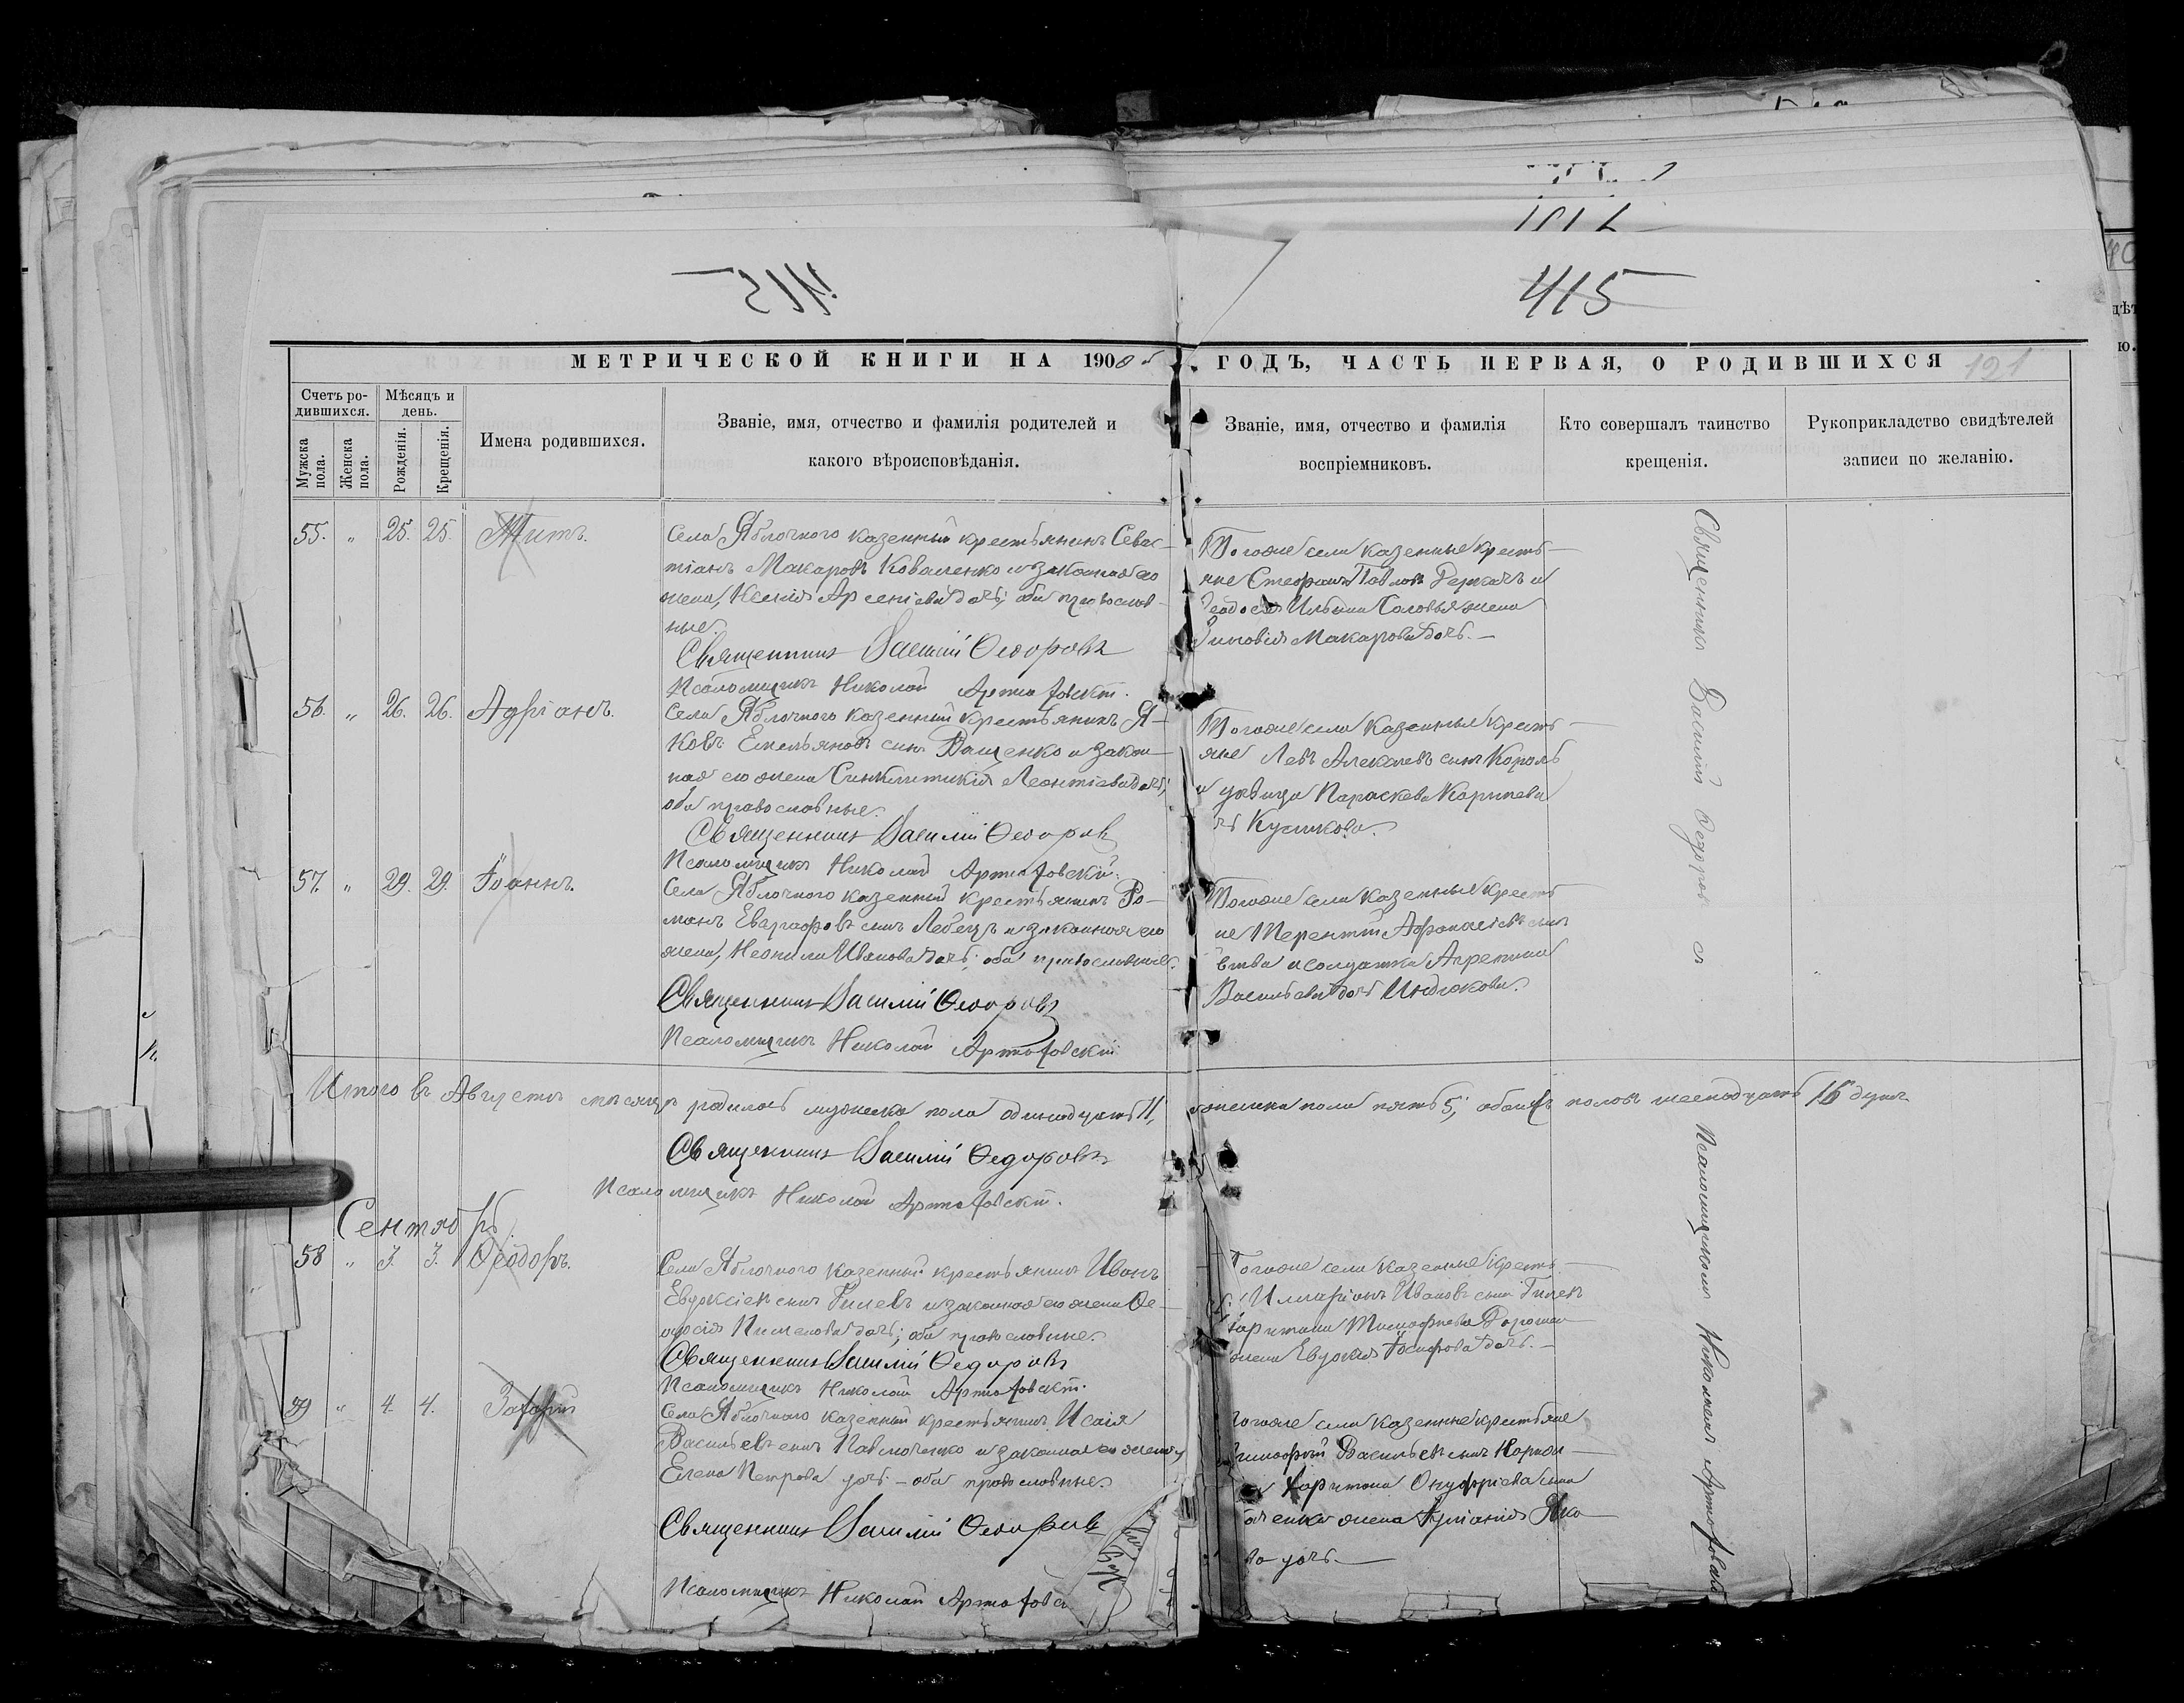 415
МЕТРИЧЕСКОЙ КНИГИ НА 1900
ГОДЪ, ЧАСТЬ ПЕРВАЯ, О РОДИВШИХСЯ
191
Счетъ ро-
дившихся.
Мужска
пола.
Женска
пола.
Мѣсяцъ и
день.
Рожденія.
Крещенія.
Имена родившихся.
Званіе, имя, отчество и фамилія родителей и
какого вѣроисповѣданія.
Званіе, имя, отчество и фамилія
воспріемниковъ.
Кто совершалъ таинство
крещенія.
Рукоприкладство свидѣтелей
записи по желанію.
55. " 25. 25. Титъ.
Села Яблочного казенный крестьянинъ Севас-
тіанъ Макаровъ Коваленко и законная его
жена, Ксенія Арсеніева дочь; оба православ-
ные.
Священникъ Василій Ѳеодоровъ
Псаломщикъ Николай Артюховскій.
Тогоже села казенные кресть-
яне Стефанъ Павловъ Деркачъ и
Ильина Соловья жена
Зиновія Макарова дочь.
56. " 26. 26. Адріанъ.
Села Яблочного казенный крестьянинъ Я-
ковъ Емельяновъ сынъ Ващенко и закон-
ная его жена Синклитикія Леонтіева дочь;
оба православные.
Священникъ Василій Ѳеодоровъ
Псаломщикъ Николай Артюховскій.
Тогоже села казенные кресть-
яне Левъ Алексіевъ сынъ Король
и Параскева Карпова
57. " 29. 29. Іоаннъ.
Села Яблочного казенный крестьянинъ Ро-
манъ Евграфовъ сынъ Лебецъ и законная его
жена, Неонила Иванова дочь; оба православные.
Священникъ Василій Ѳеодоровъ
Псаломщикъ Николай Артюховскій
Тогоже села казенные кресть
не Терентій Афанасіевъ сынъ
и солдатка Агрепина
Васильева дочь Индюкова.
Итого въ Августѣ мѣсяцѣ родилось мужска пола одинадцать 11, женска пола пять 5; обоихъ половъ шеснадцать 16 душъ
Священникъ Василій Ѳедоровъ
Псаломщикъ Николай Артюховскій.
Сентябрь
58 " 3. 3. Ѳеодоръ.
Села Яблочного казенный крестьянинъ Иванъ
сынъ Гилевъ и законная его жена Ѳе-
Пименова дочь; оба православные.
Священникъ Василій Ѳедоровъ
Псаломщикъ Николай Артюховскій.
Тогоже села казенные кресть
Илларіонъ Ивановъ сынъ
Харитина Тимофѣева
жена Евдокія Іосифова дочь.
59 " 4. 4. Захарій
Села Яблочного казенный крестьянинъ Исаія
Васильевъ сынъ Павлюченко и законная его жена
Елена Петрова дочь - оба православные.
Священникъ Василій Ѳеодоровъ
Псаломщикъ Николай Артюховс
тогоже села казенные крестьяне
Тимофѣй Васильевъ сынъ
Харитона Онуфріева сына
жена Іуліанія Яко-
ва дочь.
Священникъ Василій Ѳедоровъ съ
Псаломщикомъ Николаемъ Артюховск